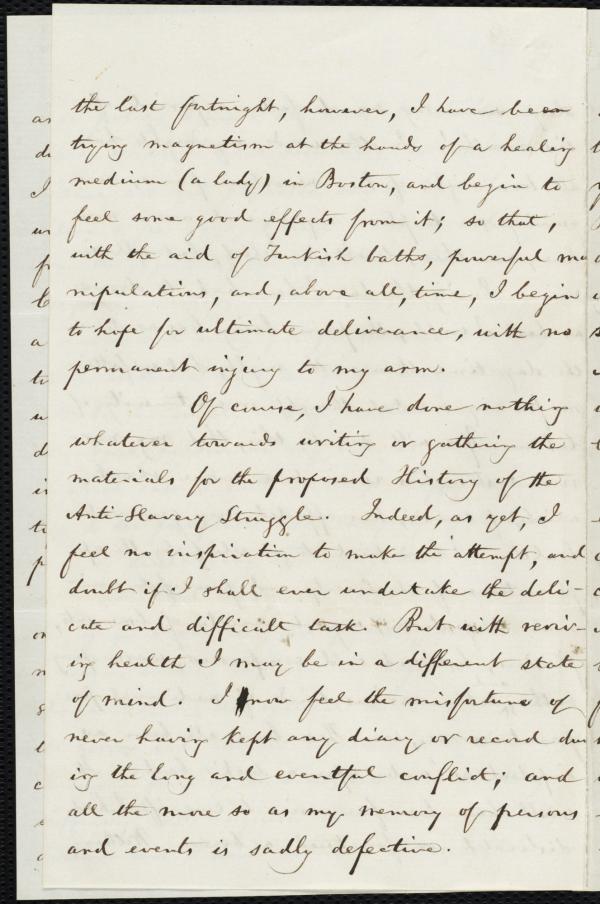 the last fortnight, however, I have been
trying magnetism at the hands of a healing
medium (a lady) in Boston, and begin to
feel some good effects from it; so that,
with the aid of Turkish baths, powerful ma
nipulations, and, above all, time, I begin
to hope for ultimate deliverance, with no
permanent injury to my arm.
Of course, I have done nothing
whatever towards writing or gathering the
materials for the proposed History of the
Anti-Slavery Struggle. Indeed, as yet, I
feel no inspiration to make the attempt, and
doubt if I shall ever undertake the deli-
cate and difficult task. But with reviv-
ing health I may be in a different state
of mind. I now feel the misfortune of
never having kept any diary or record dur
ing the long and eventful conflict; and
all the more so as my memory of persons
and events is sadly defective.